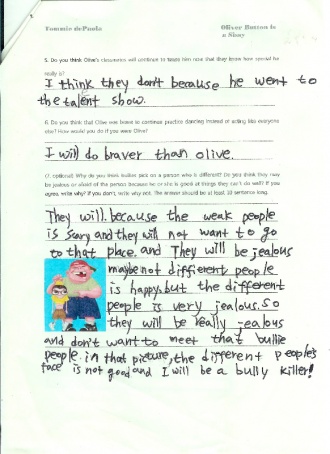 Tommie dePaola
Oliver Button is
a Sissy
5. Do you think Olive's classmates will continue to tease him now that they know how special he
really is?
I think they don't because he went to
the talent show.
6. Do you think that Olive was brave to continue practice dancing instead of acting like everyone
else? How would you do if you were Olive?
I will do braver than olive.
(7. optional) Why do you think bullies pick on a person who is different? Do you think they may
be jealous or afraid of the person because he or she is good at things they can't do well? If you
agree, write why? If you don't, write why not. The answer should be at least 30 sentence long.
They will. because the weak people
is scary and they will not want to go
to that place. and They will be jealous
maybe not different people
is happy. but the different
people is very jealous. so
they will be really jealous
and don't want to meet that bullie
people. in that picture, the different people's
face is not good and I will be a bully killer!